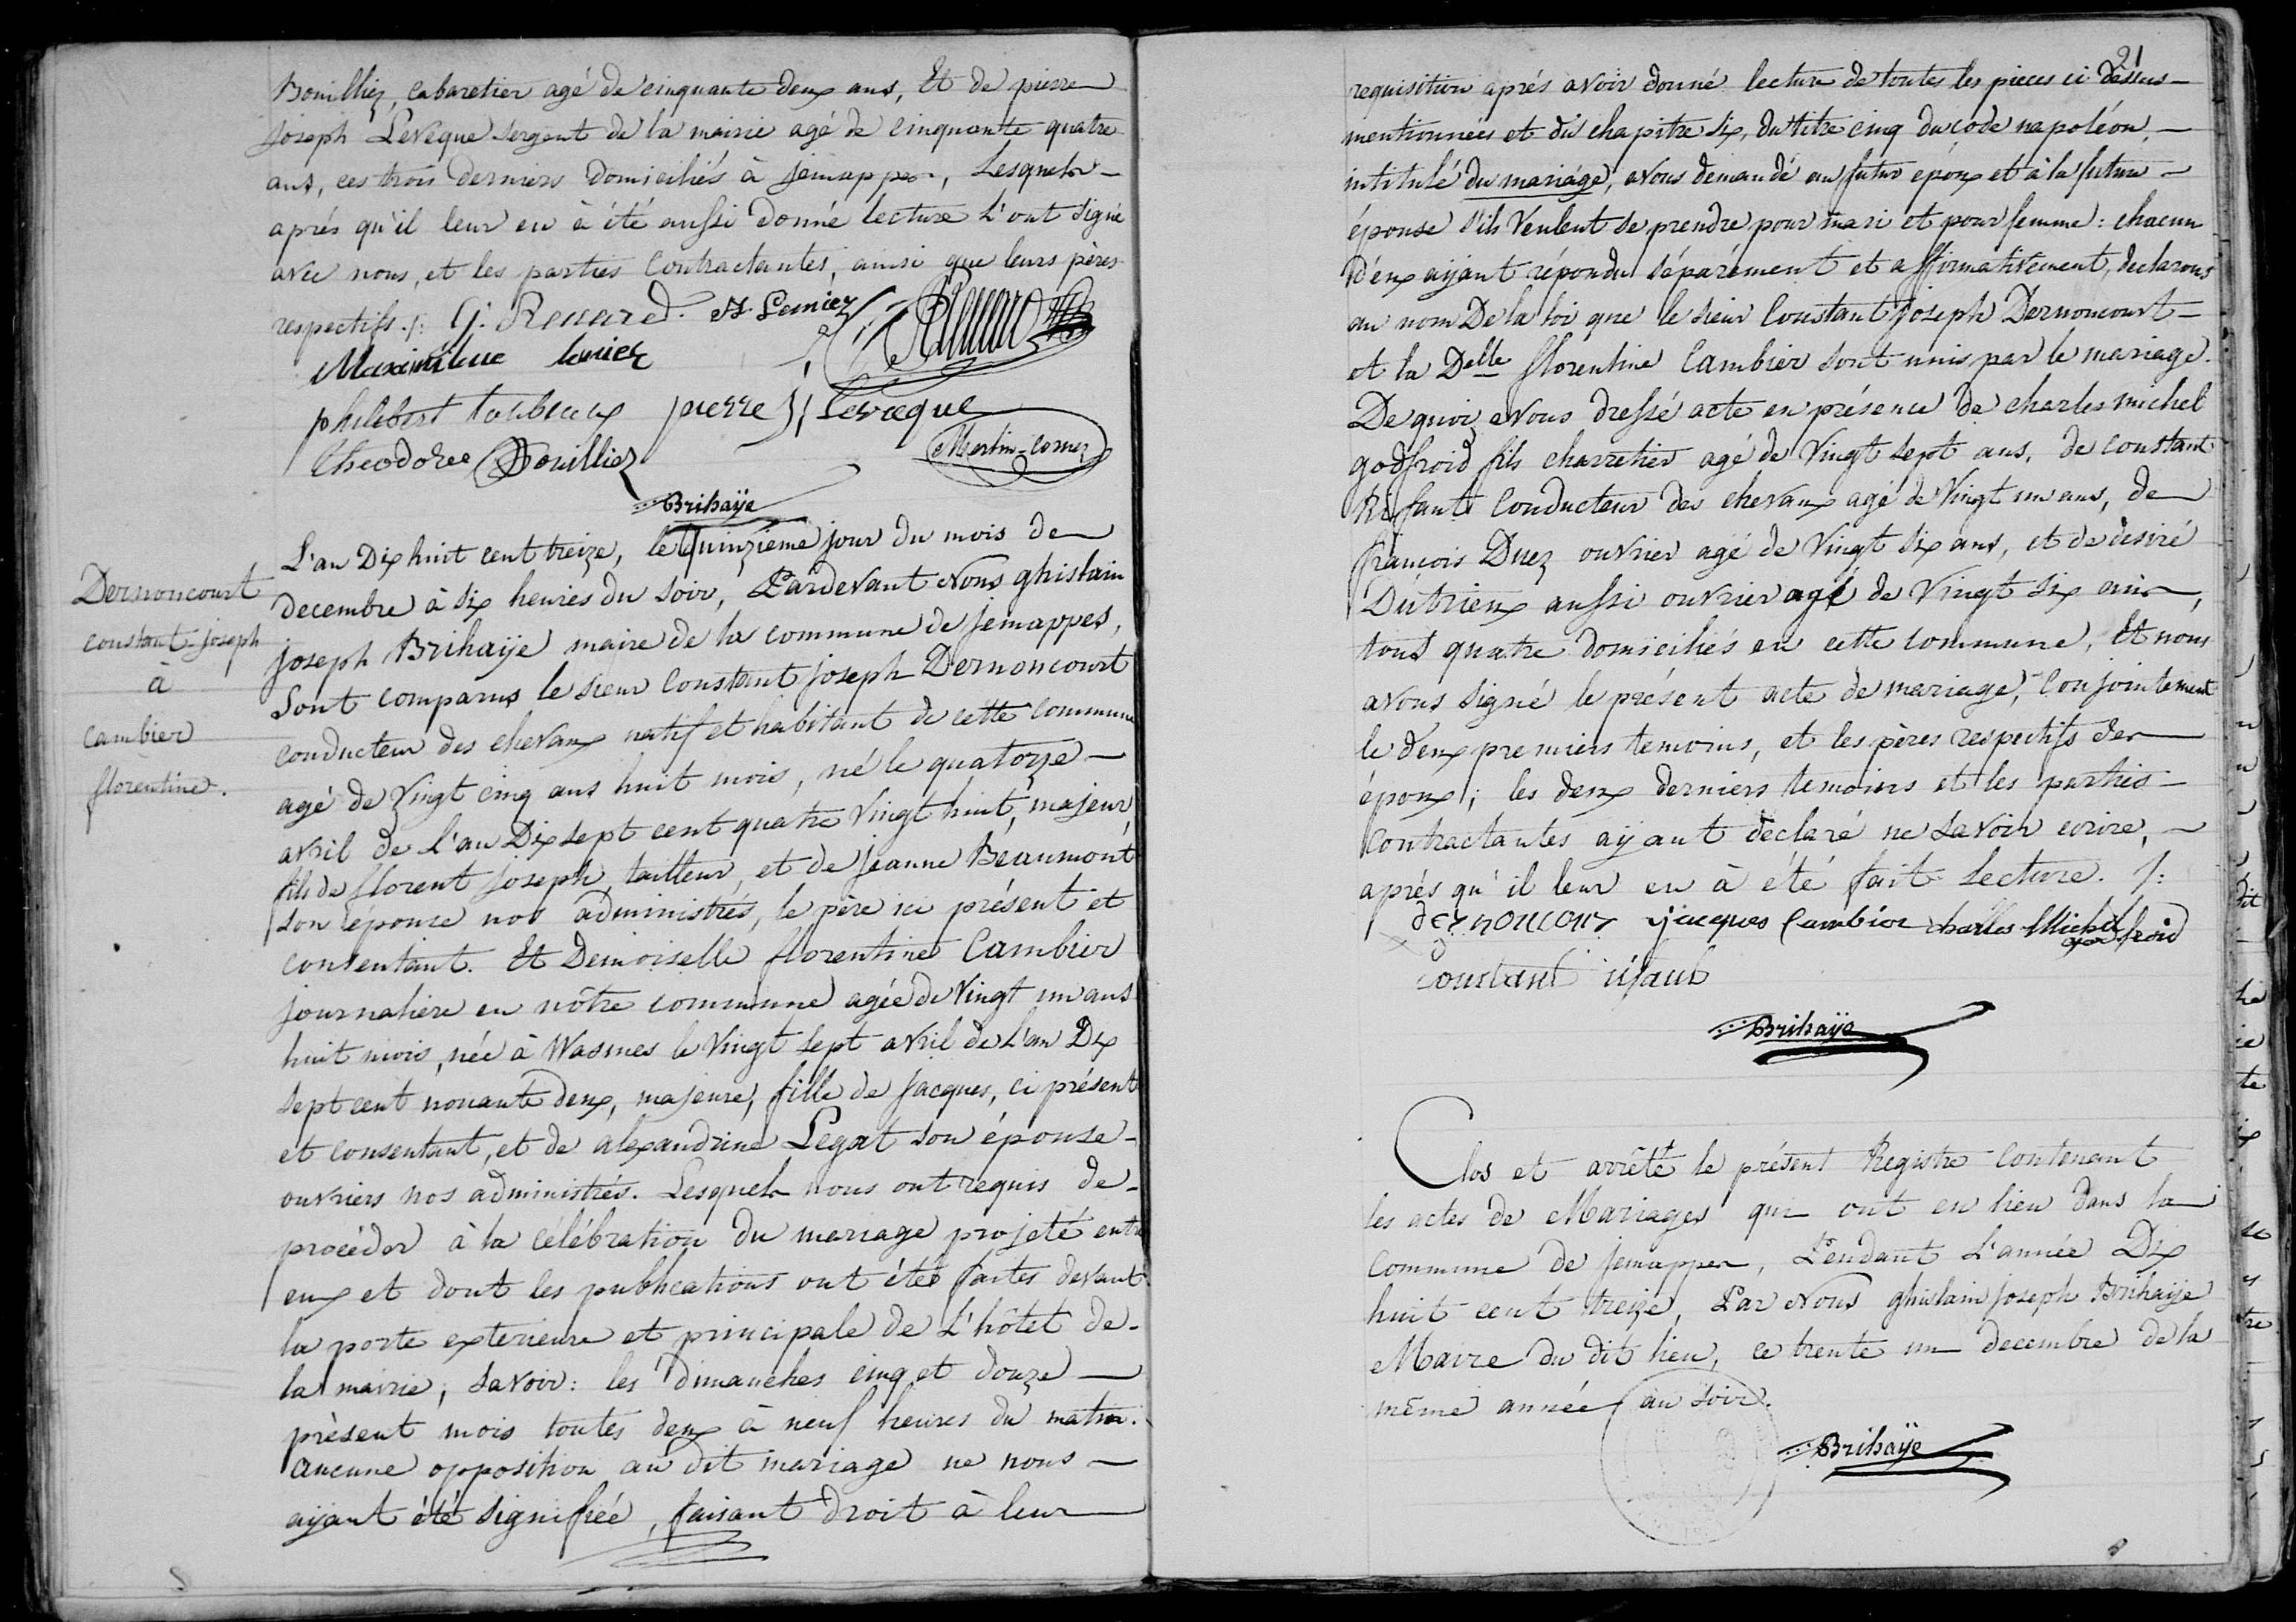 Bouilliez, cabaretier agé de cinquante deux ans, Et de pierre
joseph Leveque sergent de la mairie agé de cinquante quatre
ans, ces trois derniers domiciliés à jemappes, Lesquels
aprés qu'il leur en à été aussi donné lecture L'ont signé
avec nous, et les parties Contractantes, ainsi que leurs pères
respectifs ./: G. Renard.
Maximilien
philebert pierre j: Leveque
Theodore Bouilliez
Brihaÿe
L'an Dix huit cent treize, le quinzieme jour du mois de
decembre à six heures du soir, Pardevant Nous ghislain
joseph Brihaÿe maire de la commune de jemappes,
Sont comparus le sieur Constant joseph Dernoncourt
conducteur des chevaux natif et habitant de cette commune
agé de vingt cinq ans huit mois, né le quatorze
avril de l'an Dix sept cent quatre Vingt huit, majeur
fils de florent joseph, tailleur, et de jeanne Beaumont
son épouse nos administrés, le père ici présent et
consentant. Et Demoiselle florentine Cambier
journaliere en nôtre commune agée de Vingt un ans
huit mois, née à Wasmes le Vingt sept avril de l'an Dix
sept cent nonante deux, majeure, fille de jacques, ci présent
et consentant, et de alexandrine Legat son épouse
ouvriers nos administrés. Lesquels nous ont requis de
procéder à la célébration du mariage projeté entre
eux et dont les publications ont étés faites devant
la porte exterieure et principale de L'hôtel de
la mairie, savoir: les dimanches cinq et douze
présent mois toutes deux à neuf heures du matin.
aucune opposition au dit mariage ne nous
aÿant été signifiée, faisant droit à leur
Dernoncourt
constant-joseph
à
cambier
florentine.
21
requisition aprés avoir donné lecture de toutes les pieces ci dessus
mentionnées et du chapitre six, du titre cinq du code napoléon,
intitulé du mariage, avons demandé au futur epoux et à la future
épouse s'ils Veulent se prendre pour mari et pour femme: chacun
d'eux aÿant répondu séparément et affirmativement, declarons
au nom De la loi que le sieur Constant joseph Dernoncourt
et la Delle florentine Cambier sont unis par le mariage.
De quoi avons dressé acte en présence de charles michel
godfroid fils charretier agé de Vingt sept ans, de constant
Rifaut Conducteur des chevaux agé de Vingt un ans, de
françois Duez ouvrier agé de Vingt six ans, et de desiré
Dutrieux aussi ouvrier agé de Vingt six ans,
tous quatre domiciliés en cette commune, Et nous
avons signé le présent acte de mariage, Conjointement
le deux premiers temoins, et les pères respectifs des
époux; les deux derniers temoins et les parties
Contractantes aÿant déclaré ne savoir ecrire,
aprés qu'il leur en à été fait lecture. /:
dernoncour jacques Cambier charles Michel godfroid
Constant rifaut
Brihaÿe
Clos et arrêté le présent Registre Contenant
les actes de Mariages qui ont eu lieu dans la
Commune de jemappes, Pendant L'année Dix
huit cent treize, Par Nous ghislain joseph Brihaÿe
Maire du dit lieu, ce trente un decembre de la
même année au soir.
Brihaÿe